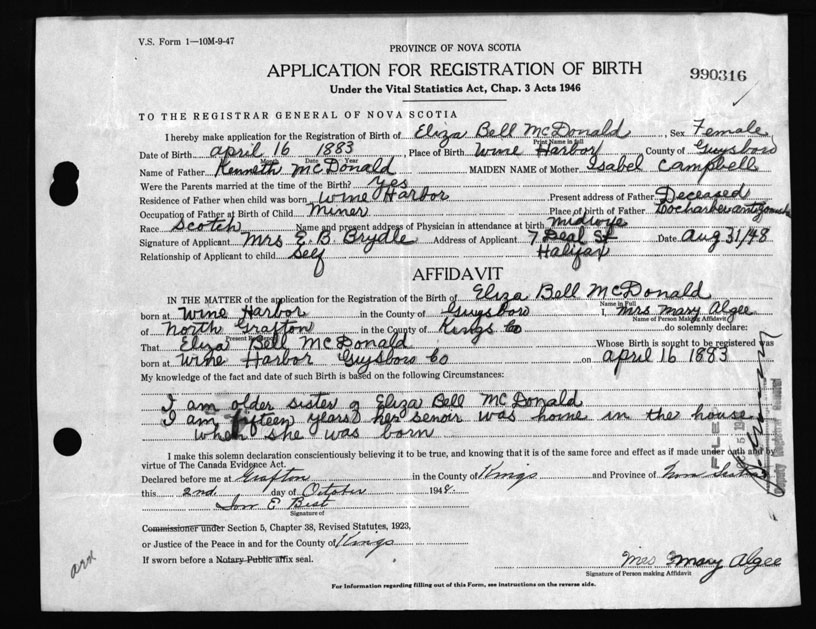 V.S. Form 1—10M-9-47
PROVINCE OF NOVA SCOTIA
APPLICATION FOR REGISTRATION OF BIRTH
990316
Under the Vital Statistics Act, Chap. 3 Acts 1946
TO THE REGISTRAR GENERAL OF NOVA SCOTIA
I hereby make application for the Registration of Birth of Eliza Bell McDonald, Sex Female
Print Name in full
Date of Birth april 16 1883, Place of Birth Wine Harbor, County of Guysboro
Date Month Year
Name of Father Kenneth McDonald MAIDEN NAME of Mother Isabel Campbell
Were the Parents married at the time of the Birth? yes
Residence of Father when child was born Wine Harbor Present address of Father Deceased
Occupation of Father at Birth of Child Miner Place of birth of Father
Race Scotch Name and present address of Physician in attendance at birth midwife
Signature of Applicant Mrs E. B. Brydle Address of Applicant 7 Deal St Date Aug 31/48
Relationship of Applicant to child Self Halifax
AFFIDAVIT
IN THE MATTER of the application for the Registration of the Birth of Eliza Bell McDonald
Name in Full
born at Wine Harbor in the County of Guysboro I, Mrs Mary Algee
Name of Person Making Affidavit
of North Grafton in the County of Kings Co do solemnly declare:
Present Residence
That Eliza Bell McDonald Whose Birth is sought to be registered was
born at Wine Harbor Guysboro Co on april 16 1883
My knowledge of the fact and date of such Birth is based on the following Circumstances:
I am older sister of Eliza Bell McDonald
I am fifteen years her senoir was home in the house
when she was born
I make this solemn declaration conscientiously believing it to be true, and knowing that it is of the same force and effect as if made under oath and by
virtue of The Canada Evidence Act.
Declared before me at Grafton in the County of Kings and Province of Nova Scotia
this 2nd day of October 1948.
E Best
Signature of
Commissioner under Section 5, Chapter 38, Revised Statutes, 1923,
or Justice of the Peace in and for the County of Kings
If sworn before a Notary Public affix seal.
Mrs Mary Algee
Signature of Person making Affidavit
For Information regarding filling out of this Form, see instructions on the reverse side.
FILED